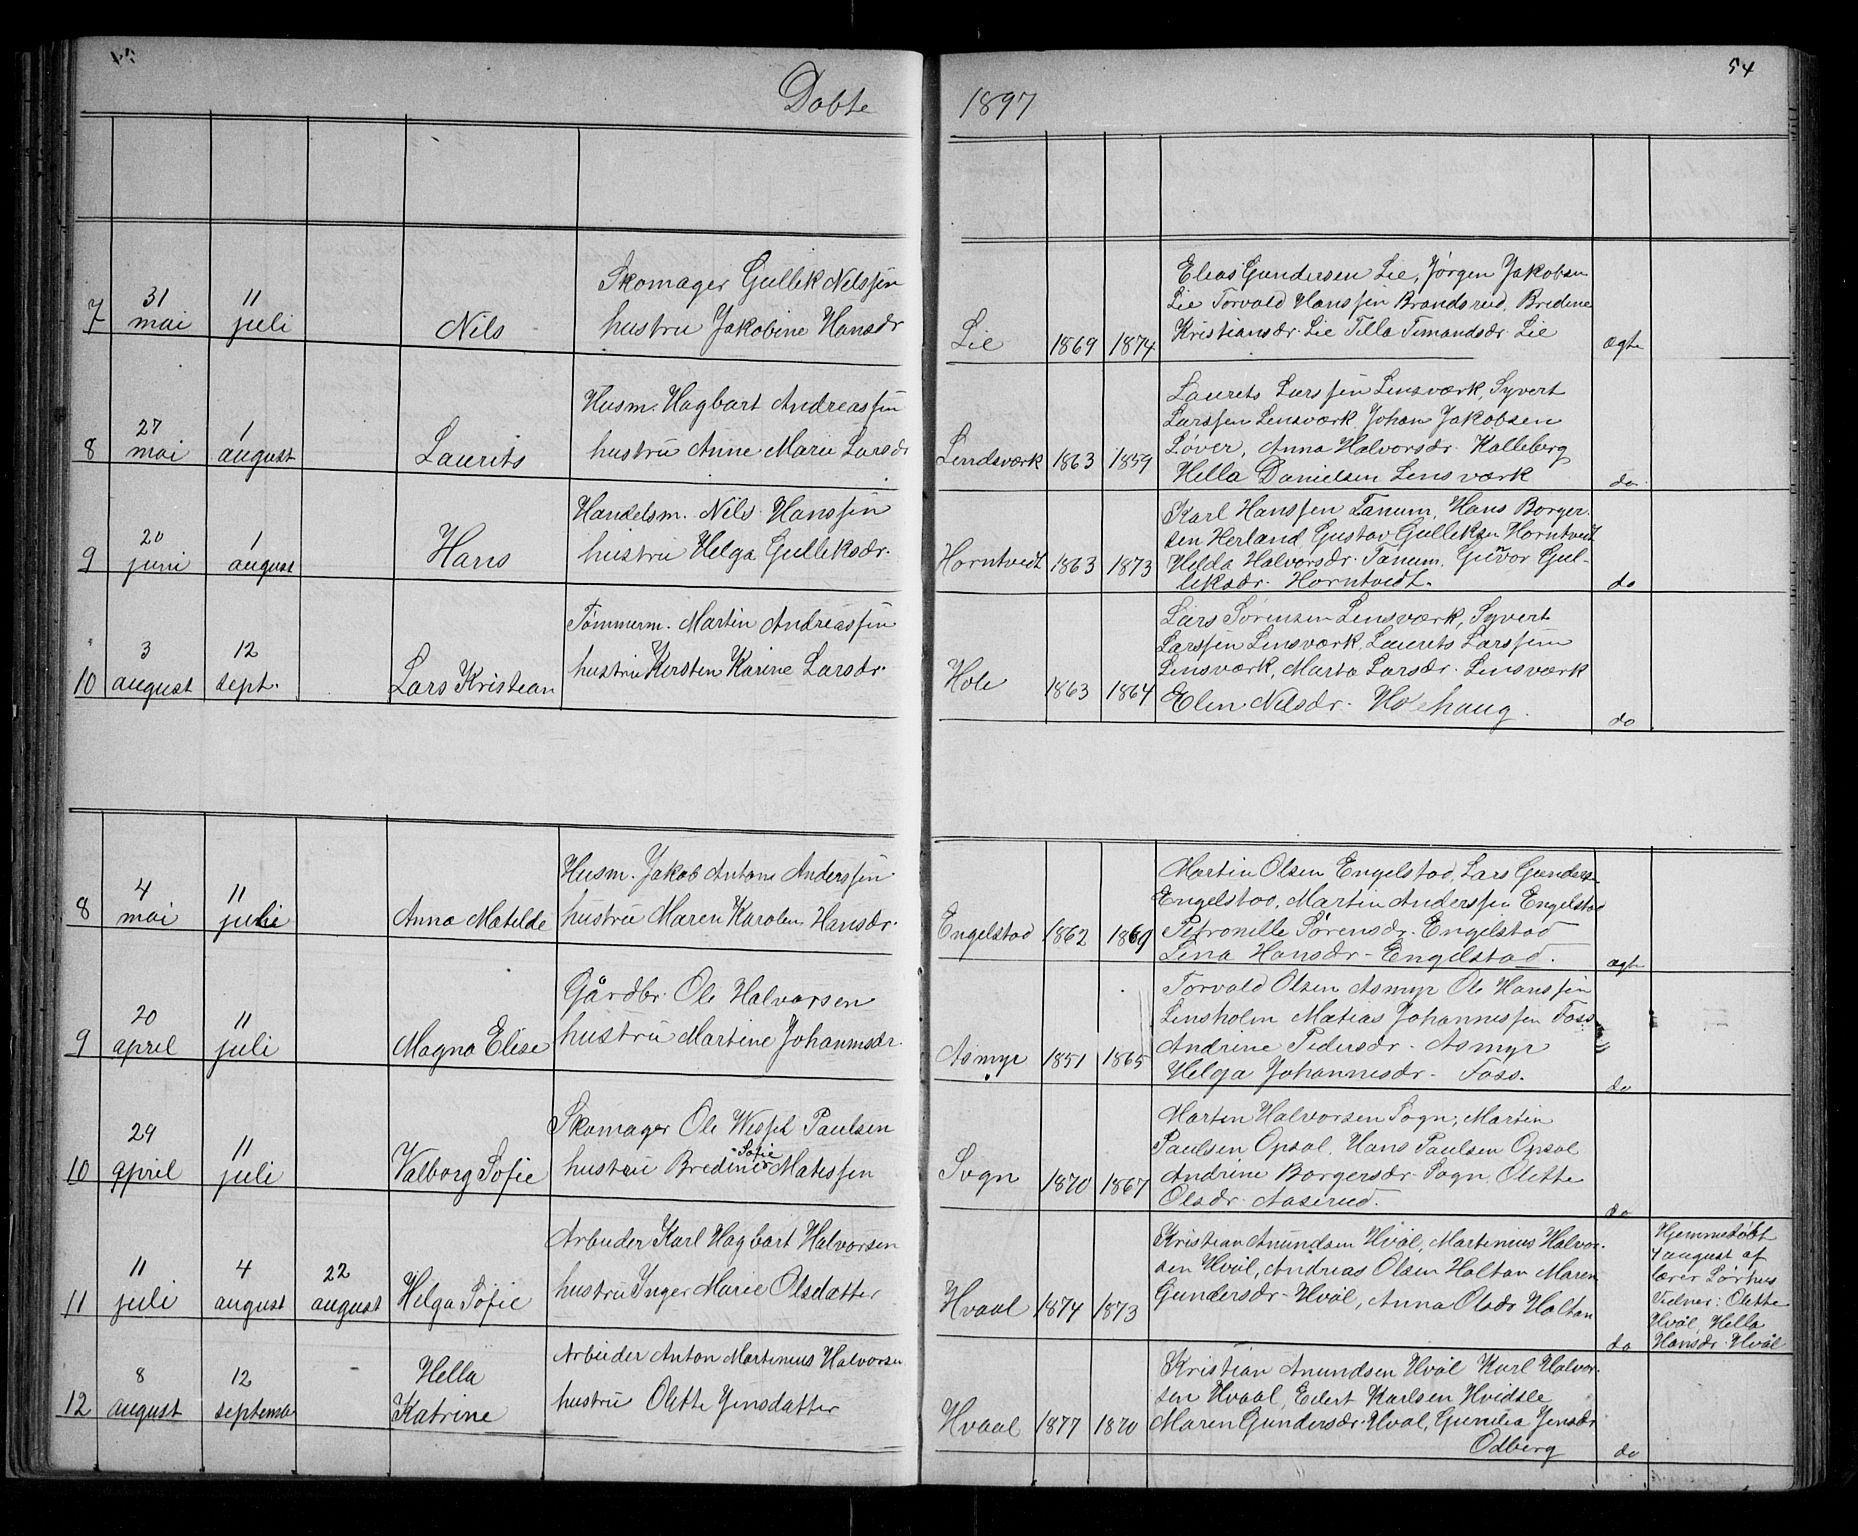 Døbte 1897
54
7
31
mai
11
juli
Nils
Skomager Gullek Nilssen
hustru Jakobine Hansdr
Lie
1869
1874
Elias Gundersen Lie, Jørgen Jakobsen
Lie Torvald Hanssen Brandsrud, Bredine
Kristiansdr. Lie Tilla Timandsdr. Lie
ægte
8
27
mai
1
august
Laurits
Husm. Hagbart Andreassen
hustru Anne Marie Larsdr
Lendsværk
1863
1859
Laurets Larssen Lensværk, Syvert
Larssen Lensværk Johan Jakobsen
Løver, Anna Halvorsdr. Kalleberg
Hella Danielsen Lensværk
do
9
20
juni
1
august
Hans
Handelsm. Nils Hanssen
hustru Helga Gulleksdr.
Horntvedt
1863
1873
Karl Hanssen Tanum, Hans Borger-
sen Herland Gustav Gulleksen Horntvedt
Helda Halvorsdr. Tanum, Gunvor Gul-
leksdr. Horntvedt.
do
10
3
august
12
sept.
Lars Kristian
Tømmerm. Martin Andreassen
hustru Kirsten Karine Larsdr.
Hole
1863
1864
Lars Sørensen Lensværk, Syvert
Larssen Lensværk, Laurets Larssen
Lensværk, Marta Larsdr. Lensværk
Elen Nilsdr. Holehaug.
do
8
4
mai
11
juli
Anna Matilde
Husm. Jakob Anton Anderssen
hustru Maren Karolen Hansdr.
Engelstad
1862
1869
Martin Olsen Engelstad, Lars Gundersen
Engelstad, Martin Anderssen Engelstad
Petronille Sørensdr. Engelstad
Lina Hansdr. Engelstad.
ægte
9
20
april
11
juli
Magna Elise
Gårdbr. Ole Halvorsen
hustru Martine Johannsdr.
Asmyr
1851
1865
Torvald Olsen Asmyr Ole Hanssen
Lensholm Matias Johannessen Foss
Andrine Pedersdr. Asmyr
Helga Johannesdr. Foss.
do
10
29
april
11
juli
Valborg Sofie
Skomager Ole Wessel Paulsen
Sofie
hustru Bredine Matissen
Sogn
1870
1867
Martin Halvorsen Sogn, Martin
Paulsen Opsal, Hans Paulsen Opsal
Andrine Borgersdr. Sogn, Olette
Olsdr. Aaserud.
do
11
11
juli
4
august
22
august
Helga Sofie
Arbeider Karl Hagbart Halvorsen
hustru Inger Marie Olsdatter
Hvaal
1874
1873
Kristian Anundsen Hvål, Martinius Halvor-
sen Hvål, Andreas Olsen Holtan Maren
Gundersdr. Hvål, Anna Olsdr Holtan
do
Hjemmedøbt
4 august af
lærer Sørhus
Vidner: Olette
Hvål, Hella
Hansdr. Hvål
12
8
august
12
septembr
Hella
Katrine
Arbeider Anton Martinius Halvorsen
hustru Olette Jensdatter
Hvaal
1877
1870
Kristian Anundsen Hvål Karl Halvor-
sen Hvaal, Edert Karlsen Hvidsle
Maren Gundersdr. Hvål, Gunilia Jensdr
Odberg
do